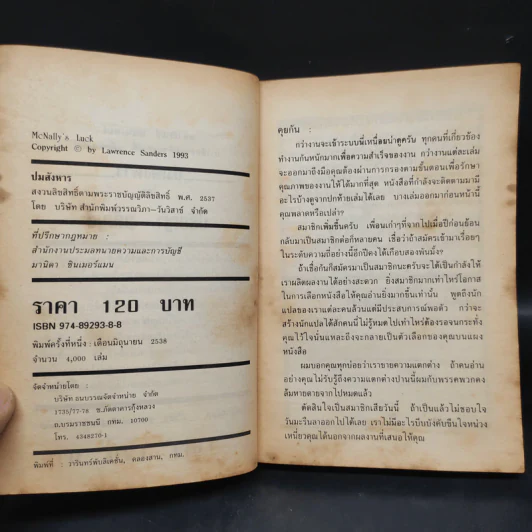 McNally's Luck
Copyright © by Lawrence Sanders 1993
ปมสังหาร
สงวนลิขสิทธิ์ตามพระราชบัญญัติลิขสิทธิ์ พ.ศ. 2537
โดย บริษัท สำนักพิมพ์วรรณวิภา-วันวิสาข์ จำกัด
ที่ปรึกษากฎหมาย :
สำนักงานประมวลทนายความและการบัญชี
มานิดา ซินเมอร์แมน
ราคา 120 บาท
ISBN 974-89293-8-8
พิมพ์ครั้งที่หนึ่ง : เดือนมิถุนายน 2538
จำนวน 4,000 เล่ม
จัดจำหน่ายโดย :
บริษัท ธนบรรณจัดจำหน่าย จำกัด
1735/77-78 ซ.ภัตตาคารกุ้งหลวง
ถ.บรมราชชนนี กทม. 10700
โทร. 4348270-1
พิมพ์ที่ : วารินทร์พับลิเคชั่น, คลองสาน, กทม.
คุยกัน :
กว่างานจะเข้าระบบพี่เหนื่อยน่าดูครับ ทุกคนที่เกี่ยวข้อง
ทำงานกันหนักมากเพื่อความสำเร็จของงาน กว่างานแต่ละเล่ม
จะออกมาถึงมือคุณต้องผ่านการกรองตามขั้นตอนเพื่อรักษา
คุณภาพของงานให้ได้มากที่สุด หนังสือที่กำลังจะติดตามมามี
อะไรบ้างดูจากปกท้ายเล่มได้เลย บางเล่มออกมาก่อนหน้านี้
คุณพลาดหรือเปล่า?
สมาชิกเพิ่มขึ้นครับ เพื่อนเก่าๆที่จากไปเมื่อปีก่อนย้อน
กลับมาเป็นสมาชิกต่อก็หลายคน เชื่อว่าถ้าสมัครเข้ามาเรื่อยๆ
ในระดับความถี่อย่างนี้อีกปีคงได้เกือบสองพันมั้ง?
ถ้าเชื่อกันก็สมัครมาเป็นสมาชิกนะครับจะได้เป็นกำลังให้
เราผลิตผลงานได้อย่างสะดวก ยิ่งสมาชิกมากเท่าไหร่โอกาส
ในการเลือกหนังสือให้คุณอ่านยิ่งมากขึ้นเท่านั้น พูดถึงนัก
แปลของเราแต่ละคนล้วนแต่มีประสบการณ์พอตัว กว่าจะ
สร้างนักแปลได้สักคนนี่ไม่รู้หมดไปเท่าไหร่ต้องรอจนกระทั่ง
คุณไว้ใจนั่นแหละถึงจะกลายเป็นตัวเลือกของคุณบนแผง
หนังสือ
ผมบอกคุณทุกบ่อยว่าเราขายความแตกต่าง ถ้าคนอ่าน
อย่างคุณไม่รับรู้ถึงความแตกต่างปานนี้ผมกับพรรคพวกคง
ล้มหายตายจากไปหมดแล้ว
ตัดสินใจเป็นสมาชิกเสียวันนี้ ถ้าเป็นแล้วไม่ชอบใจ
วันมะรืนลาออกไปได้เลย เราไม่มีอะไรบีบบังคับขืนใจหน่วง
เหนี่ยวคุณได้นอกจากผลงานที่เสนอให้คุณ